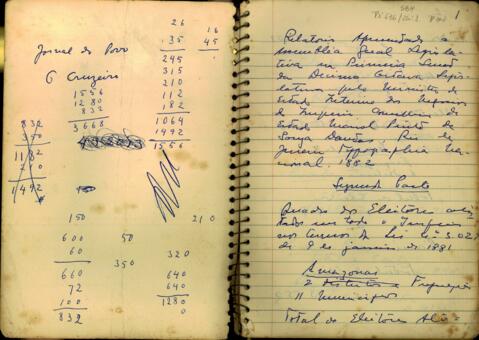 26
35 16
45
Jornal do Povo
245
315
O Cruzeiro
210
1556
112
1280
182
832
3668
1064
1492
1556
832
350
1182
210
1492
150
210
600 50
60 320
350
660 640
72 640
100 1280
832 0
1
Relatorio Apresentado a
Assemblia Geral Legisla-
tiva na Primeira Sessão
da Decima Oitava Legis-
latura pelo Ministro e
Estado Interino dos Negocios
do Imperio Conselheiro de
Estado Manoel Pinto de
Souza Dantas. Rio de
Janeiro Typographia Na-
cional. 1882
Segunda Parte
Quadro dos Eleitores alis-
tados em todo o Imperio
nos termos da Lei nº 3.029
de 9 de janeiro de 1881
Amazonas
2 Districtos
11 Municipios
Total de Eleitores Alis-